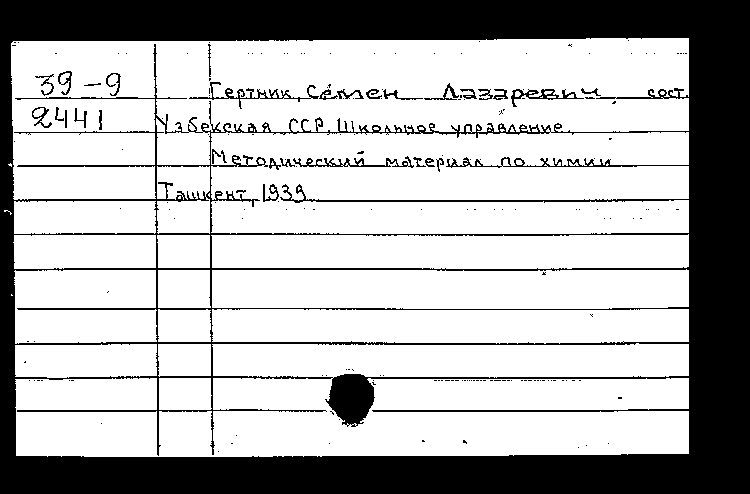 39-9 Гертник, Семен Лазаревич сост.
2441 Узбекская ССР. Школьное управление.
Методический материал по химии
Ташкент, 1939